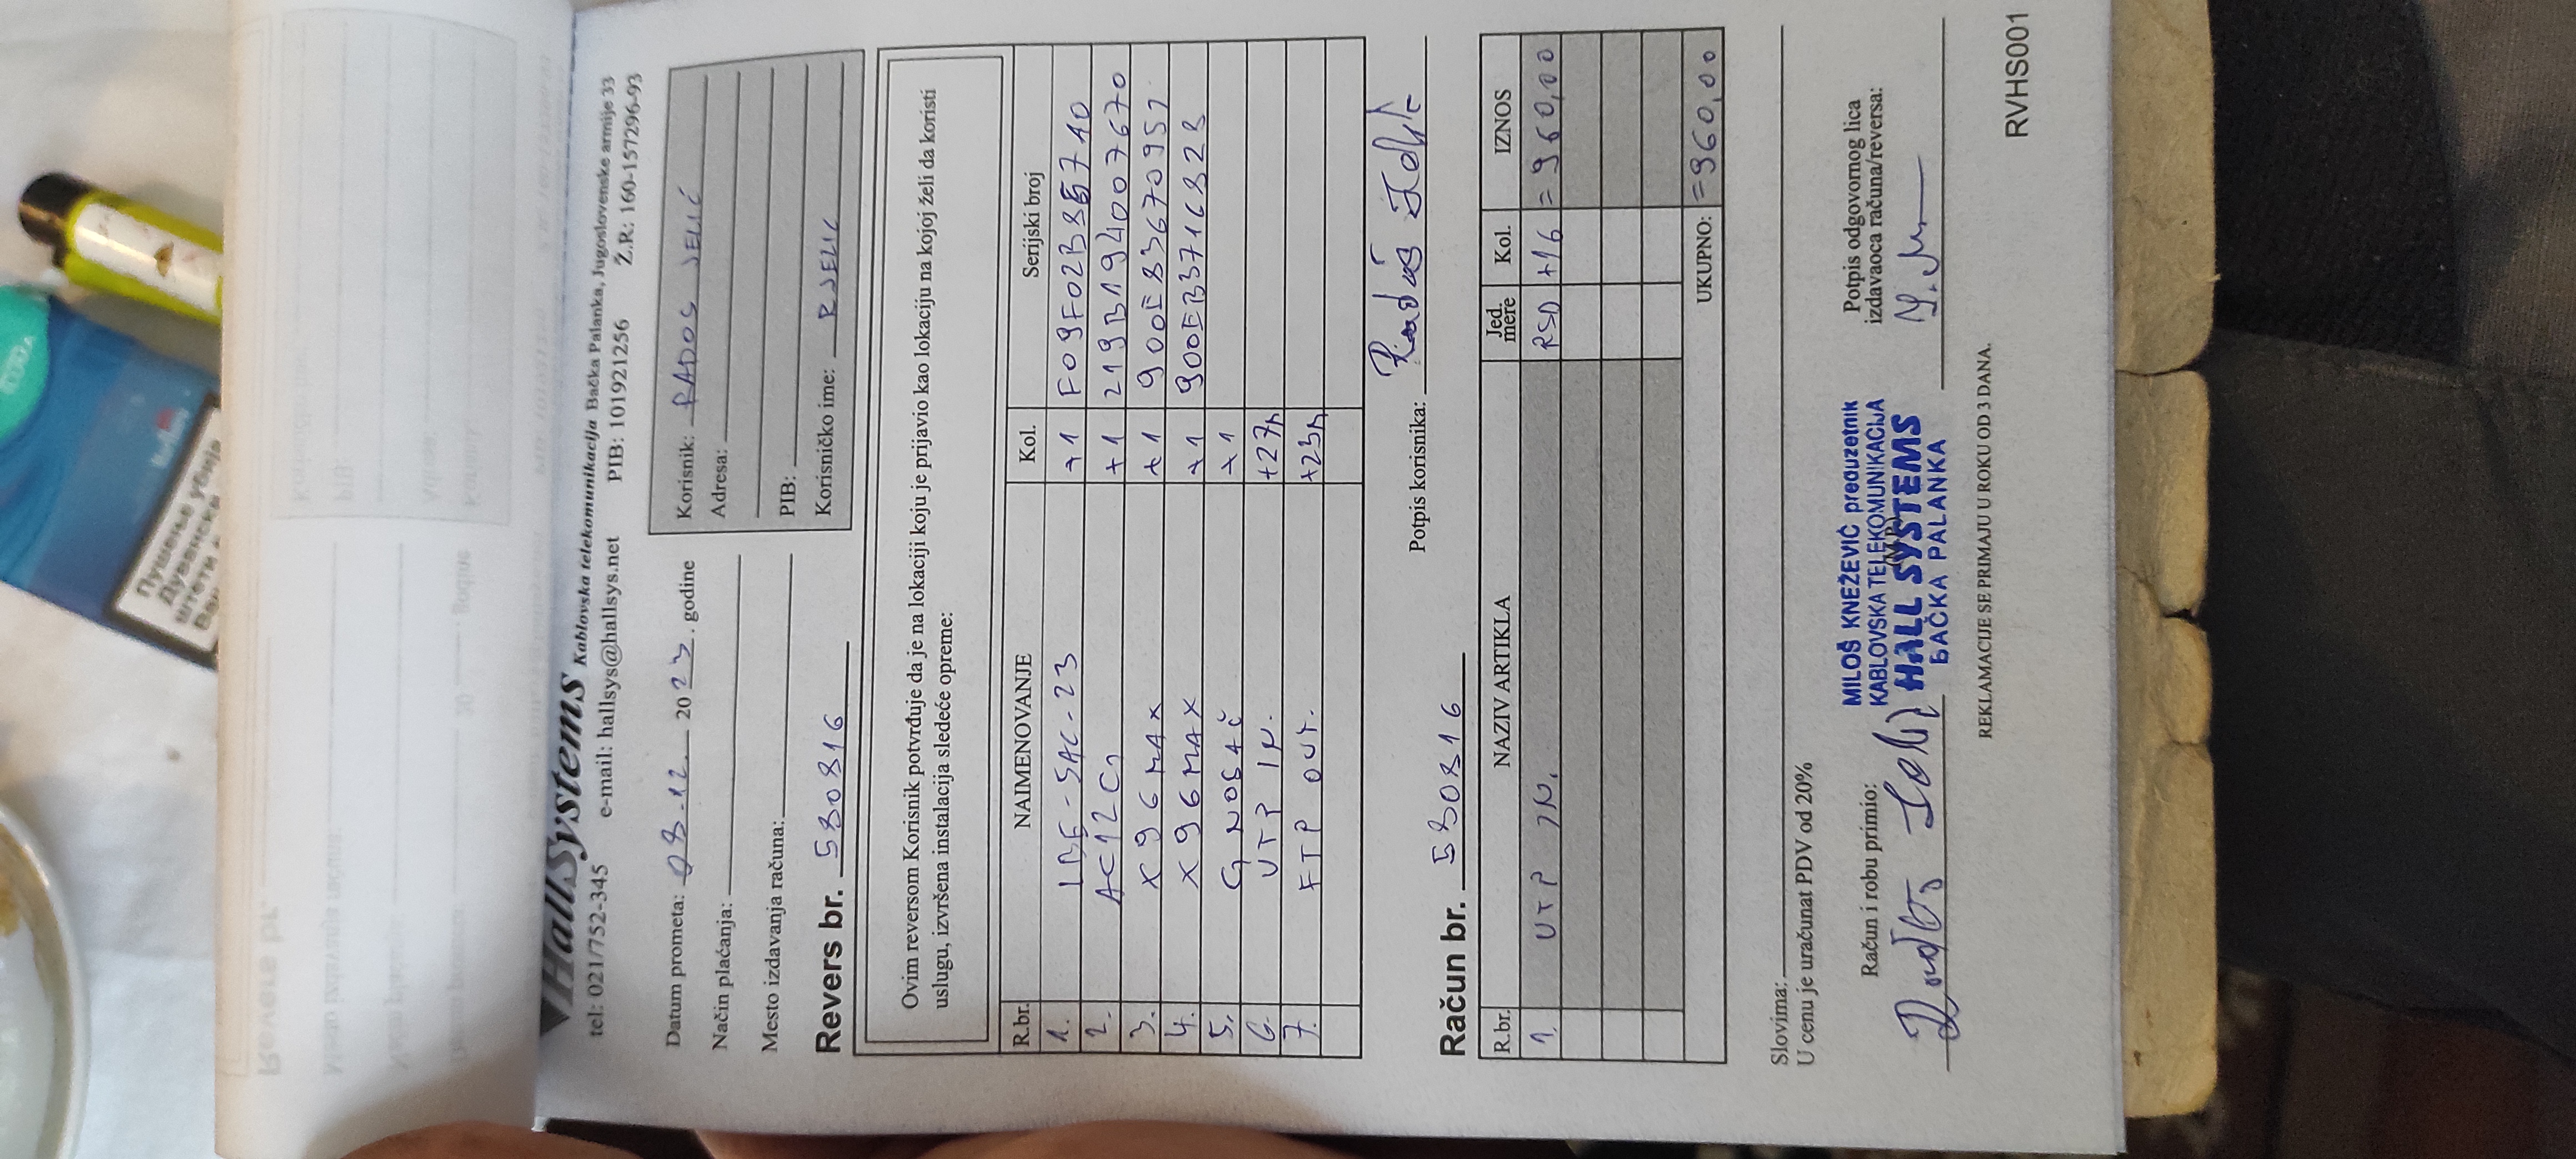 HallSystems Kablovska telekomunikacija Bačka Palanka, Jugoslovenske armije 33
tel: 021/752-345 e-mail: hallsys@hallsys.net PIB: 101921256 Ž.R.: 160-157296-93
Datum prometa: 08.12. 2023. godine
Način plaćanja:
Mesto izdavanja računa:
Korisnik: RADOŠ JELIĆ
Adresa:
PIB:
Korisničko ime: RJELIC
Revers br. 580816
Ovim reversom Korisnik potvrđuje da je na lokaciji koju je prijavio kao lokaciju na kojoj želi da koristi
uslugu, izvršena instalacija sledeće opreme:
R.br. NAIMENOVANJE Kol. Serijski broj
1. LBE-5AC-23 +1
2. AC12G +1 219B194007670
3. X96 MAX +1 900E83670951
4. X96 MAX +1 900EB3716828
5. G NOSAČ +1
6. UTP IN. +27m
7. FTP OUT. +23m
Potpis korisnika: Radoš Jelić
Račun br. 580816
R.br. NAZIV ARTIKLA Jed. mere Kol. IZNOS
1. UTP IN. RSD +16 =960,00
UKUPNO: =960,00
Slovima:
U cenu je uračunat PDV od 20%
Račun i robu primio:
Radoš Jelić
MILOŠ KNEŽEVIĆ preduzetnik
KABLOVSKA TELEKOMUNIKACIJA
HALL SYSTEMS
BAČKA PALANKA
(M.P.)
Potpis odgovornog lica
izdavaoca računa/reversa:
REKLAMACIJE SE PRIMAJU U ROKU OD 3 DANA.
RVHS001